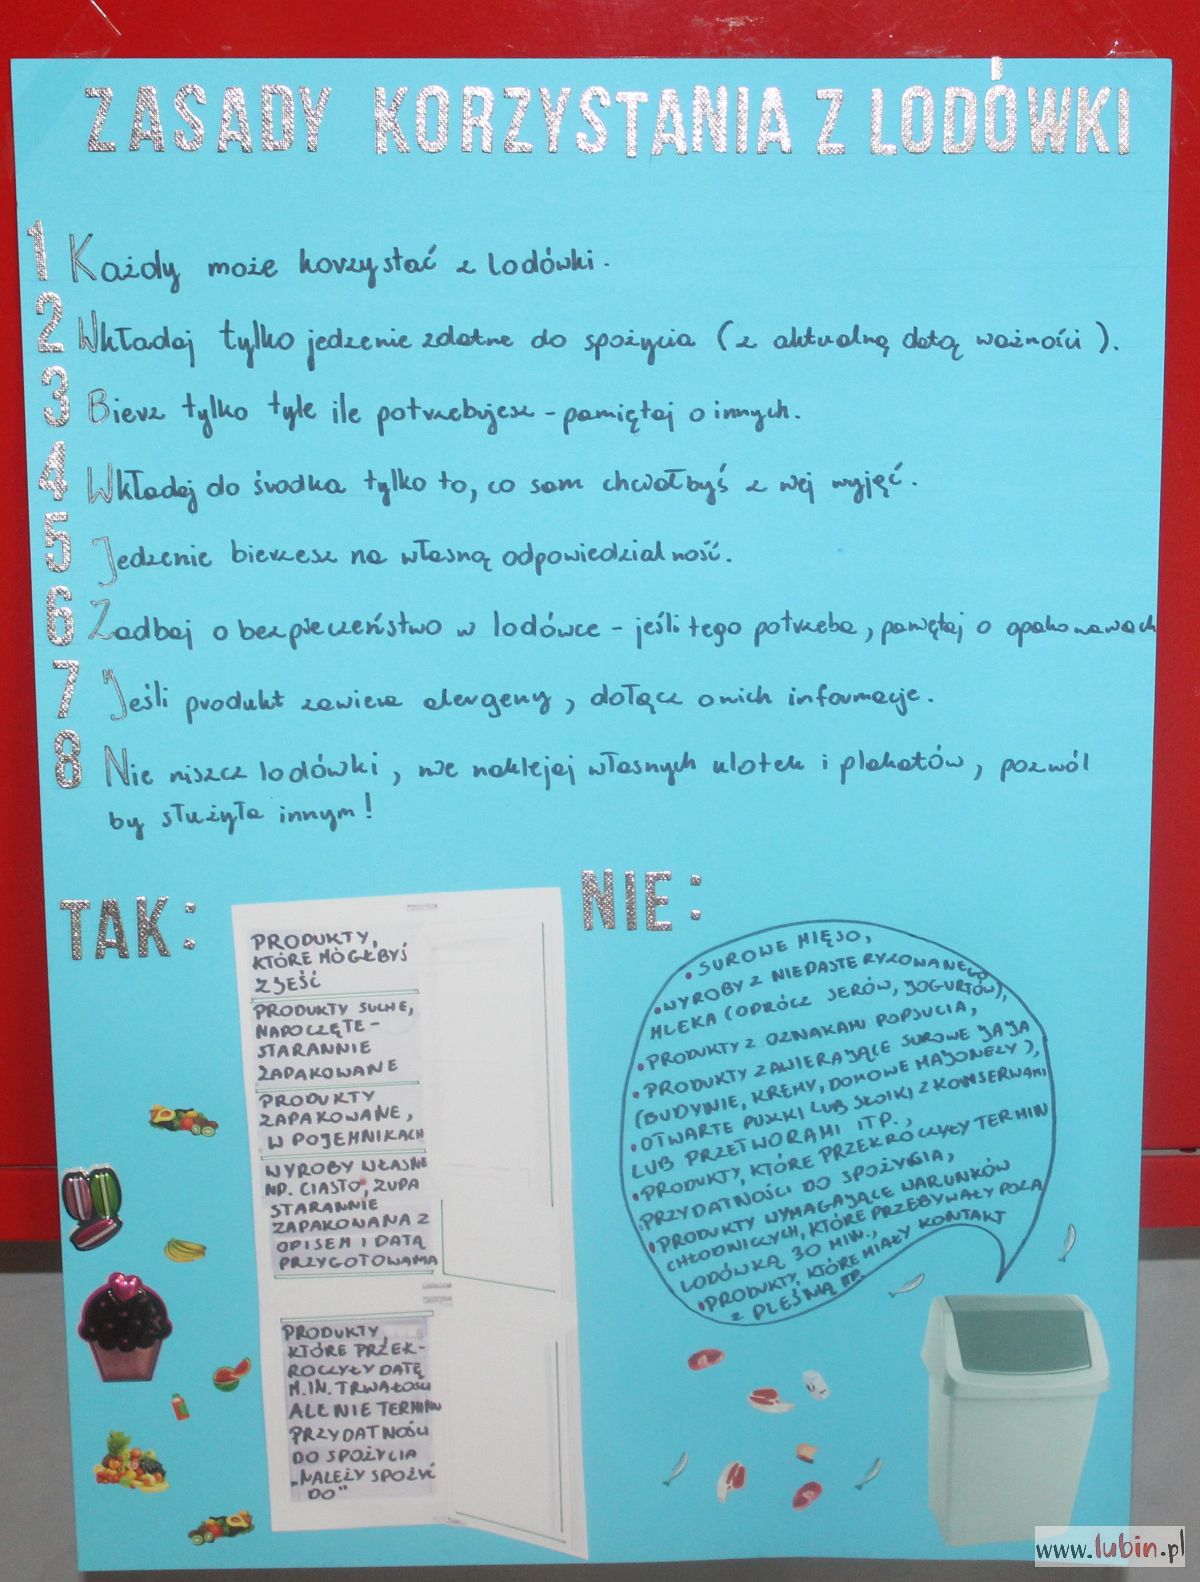 ZASADY KORZYSTANIA Z LODÓWKI
1 Każdy może korzystać z lodówki.
2 Wkładaj tylko jedzenie zdatne do spożycia (z aktualną datą ważności).
3 Bierz tylko tyle ile potrzebujesz - pamiętaj o innych.
4 Wkładaj do środka tylko to, co sam chciałbyś z niej wyjąć.
5 Jedzenie bierzesz na własną odpowiedzialność.
6 Zadbaj o bezpieczeństwo w lodówce - jeśli tego potrzeba, pamiętaj o opakowaniach
7 Jeśli produkt zawiera alergeny, dołącz o nich informacje.
8 Nie niszcz lodówki, nie naklejaj własnych ulotek i plakatów, pozwól
by służyła innym!
TAK:
PRODUKTY,
KTÓRE MÓGŁBYŚ
ZJEŚĆ
PRODUKTY SUCHE,
NAPOCZĘTE -
STARANNIE
ZAPAKOWANE
PRODUKTY
ZAPAKOWANE,
W POJEMNIKACH
WYROBY WŁASNE
NP. CIASTO, ZUPA
STARANNIE
ZAPAKOWANA Z
OPISEM I DATĄ
PRZYGOTOWANIA
PRODUKTY,
KTÓRE PRZEK-
ROCZYŁY DATĘ
M.IN. TRWAŁOŚCI
ALE NIE TERMINU
PRZYDATNOŚCI
DO SPOŻYCIA
„NALEŻY SPOŻYĆ
DO"
NIE:
• SUROWE MIĘSO,
• WYROBY Z NIEPASTERYZOWANEGO
MLEKA (OPRÓCZ SERÓW, JOGURTÓW),
• PRODUKTY Z OZNAKAMI POPSUCIA,
• PRODUKTY ZAWIERAJĄCE SUROWE JAJA
(BUDYNIE, KREMY, DOMOWE MAJONEZY),
• OTWARTE PUSZKI LUB SŁOIKI Z KONSERWAMI
LUB PRZETWORAMI ITP.,
• PRODUKTY, KTÓRE PRZEKROCZYŁY TERMIN
PRZYDATNOŚCI DO SPOŻYCIA,
• PRODUKTY WYMAGAJĄCE WARUNKÓW
CHŁODNICZYCH, KTÓRE PRZEBYWAŁY POZA
LODÓWKĄ 30 MIN.,
• PRODUKTY, KTÓRE MIAŁY KONTAKT
Z PLEŚNIĄ ITP.
www.lubin.pl